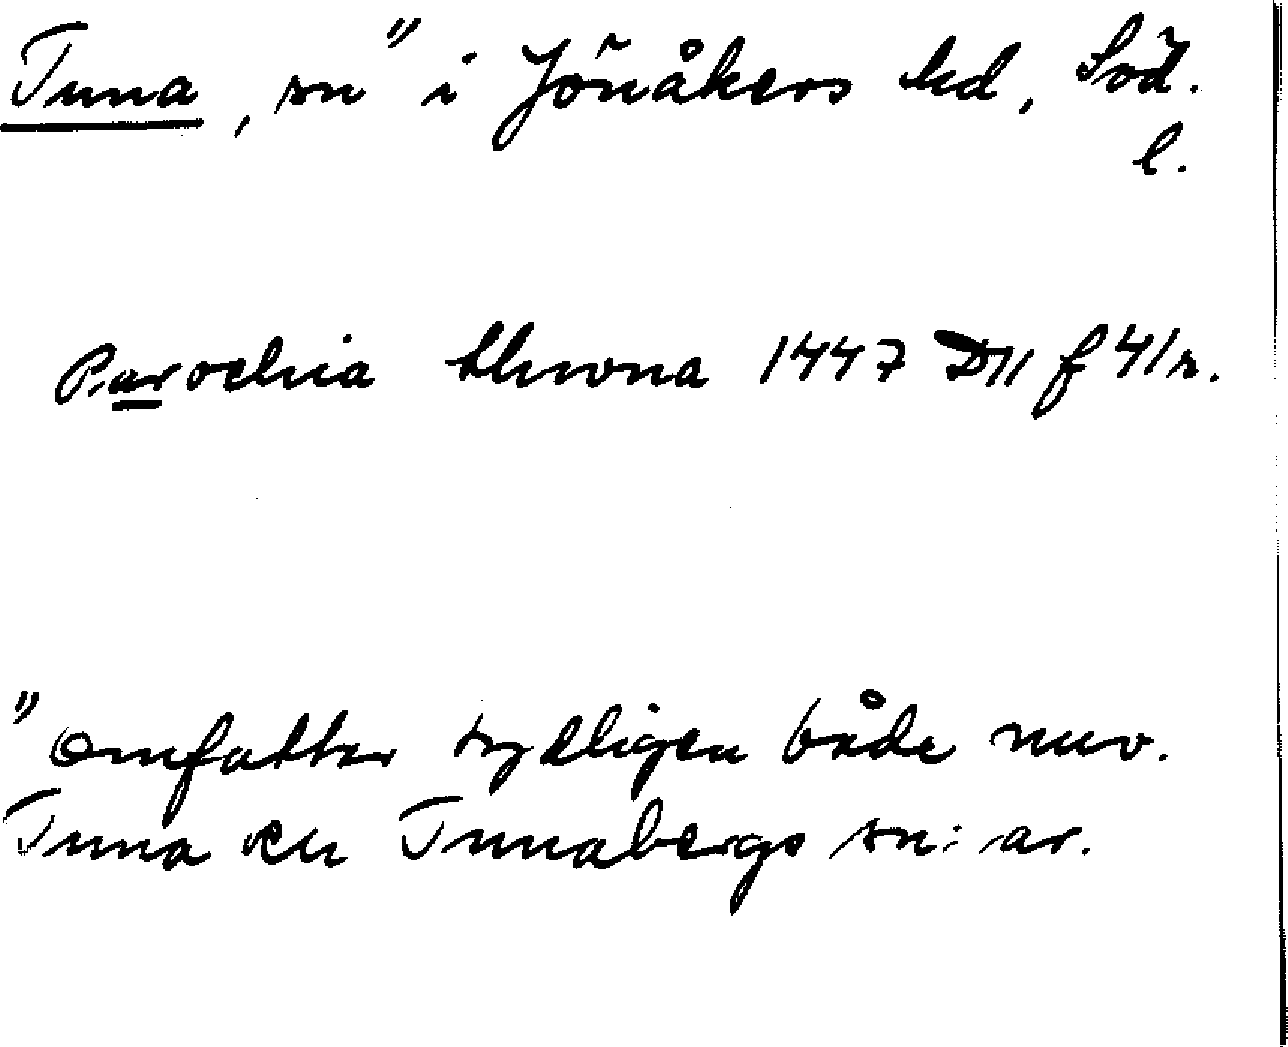 Tuna, sn" i Jönåkers hd, Söd.
l.
Parochia thwna 1447 D11 f 41r.
"Omfattar tydligen både nuv.
Tuna och Tunabergs sn:ar.